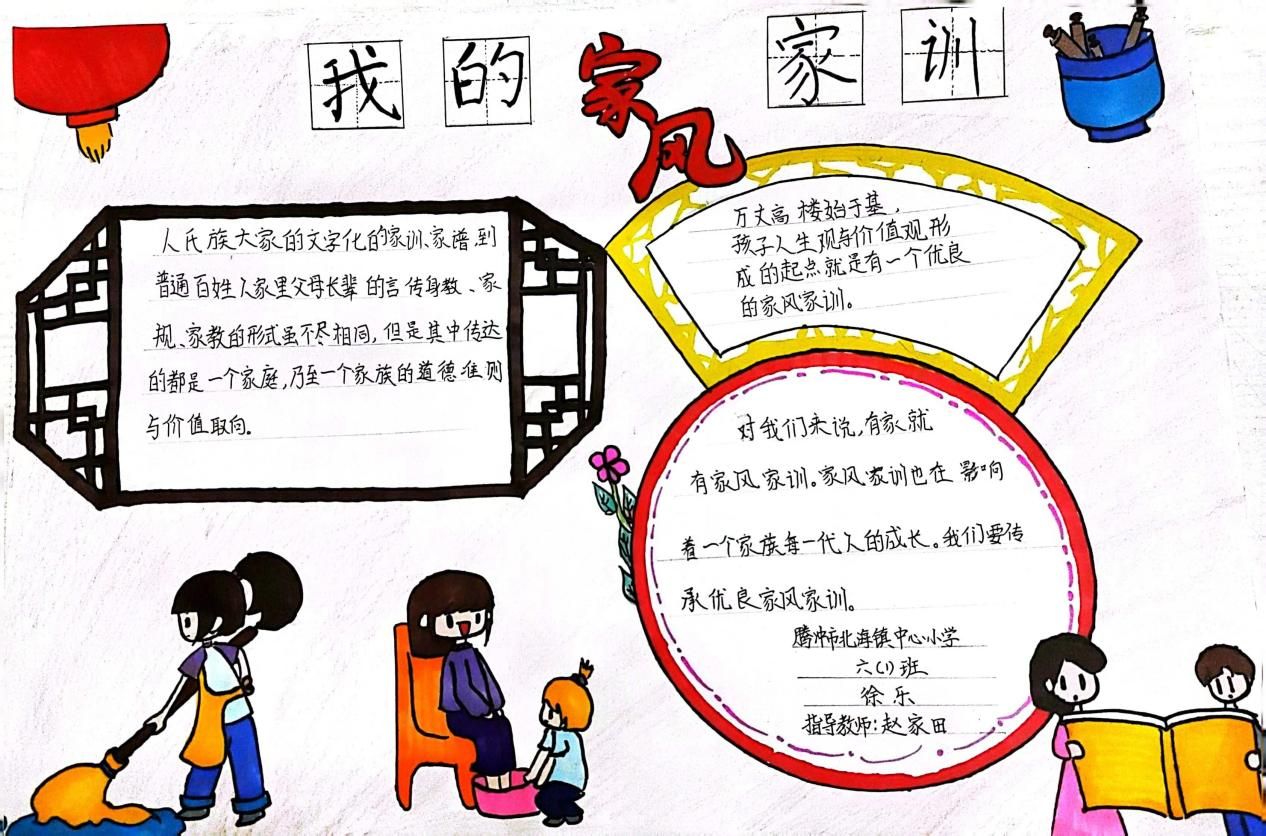 我的家风家训
人氏族大家的文字化的家训、家谱,到
普通百姓人家里父母长辈的言传身教、家
规、家教的形式虽不尽相同,但是其中传达
的都是一个家庭,乃至一个家族的道德准则
与价值取向。
万丈高楼始于基,
孩子人生观与价值观形
成的起点就是有一个优良
的家风家训。
对我们来说,有家就
有家风家训。家风家训也在影响
着一个家族每一代人的成长。我们要传
承优良家风家训。
腾冲市北海镇中心小学
六(1)班
徐乐
指导教师:赵家田